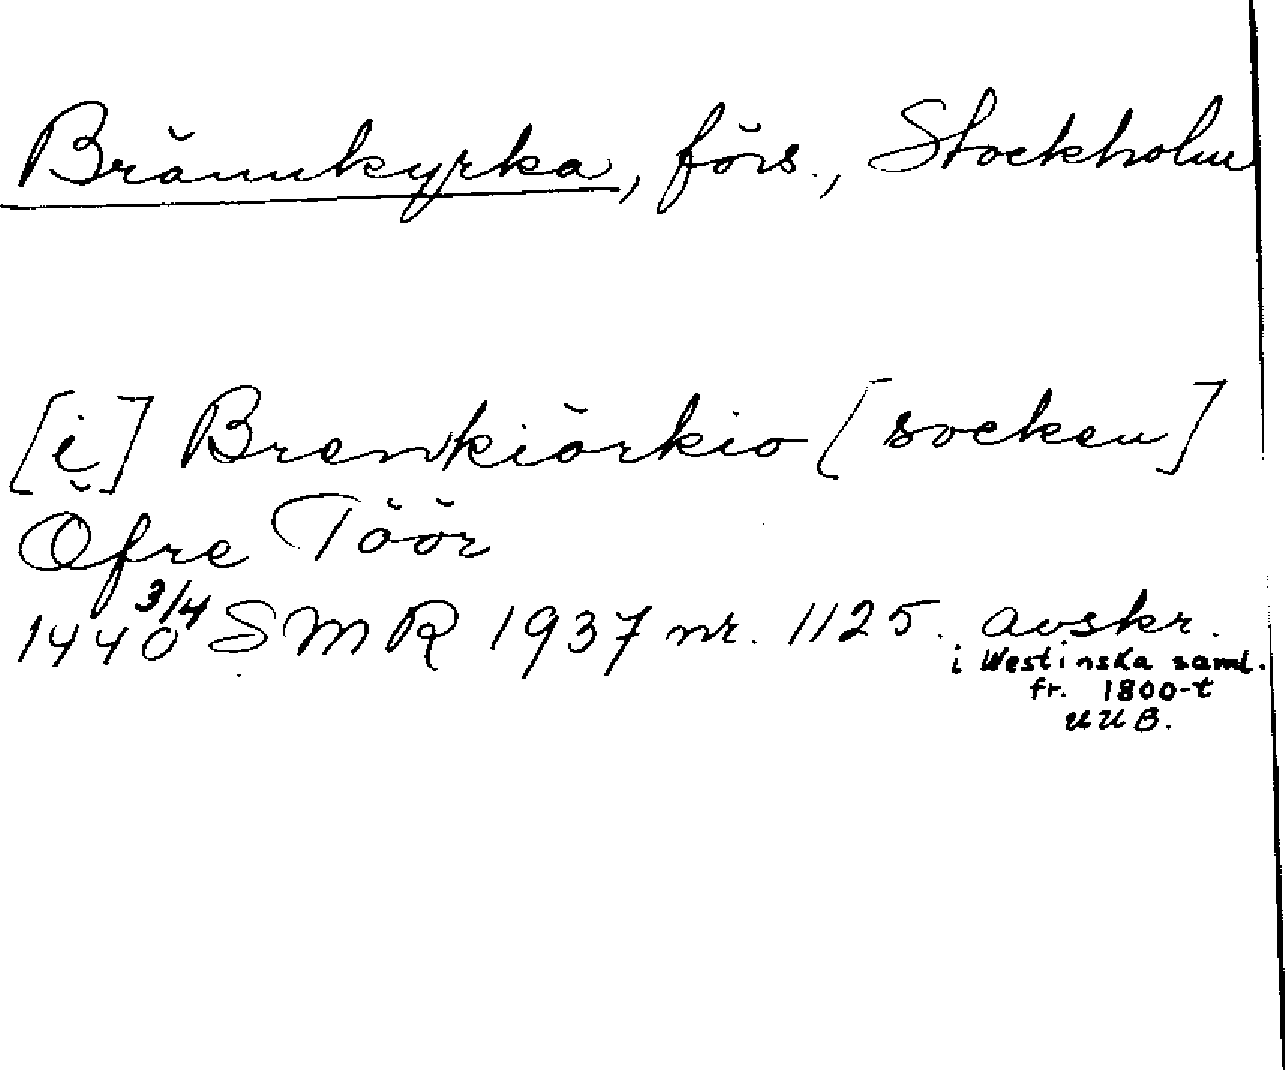 Brännkyrka, förs., Stockholm
[i] Brenkiörkio [socken]
Öfre Töör
1440 3/4 SMR 1937 nr. 1125. avskr.
i Westinska saml.
fr. 1800-t
UUB.